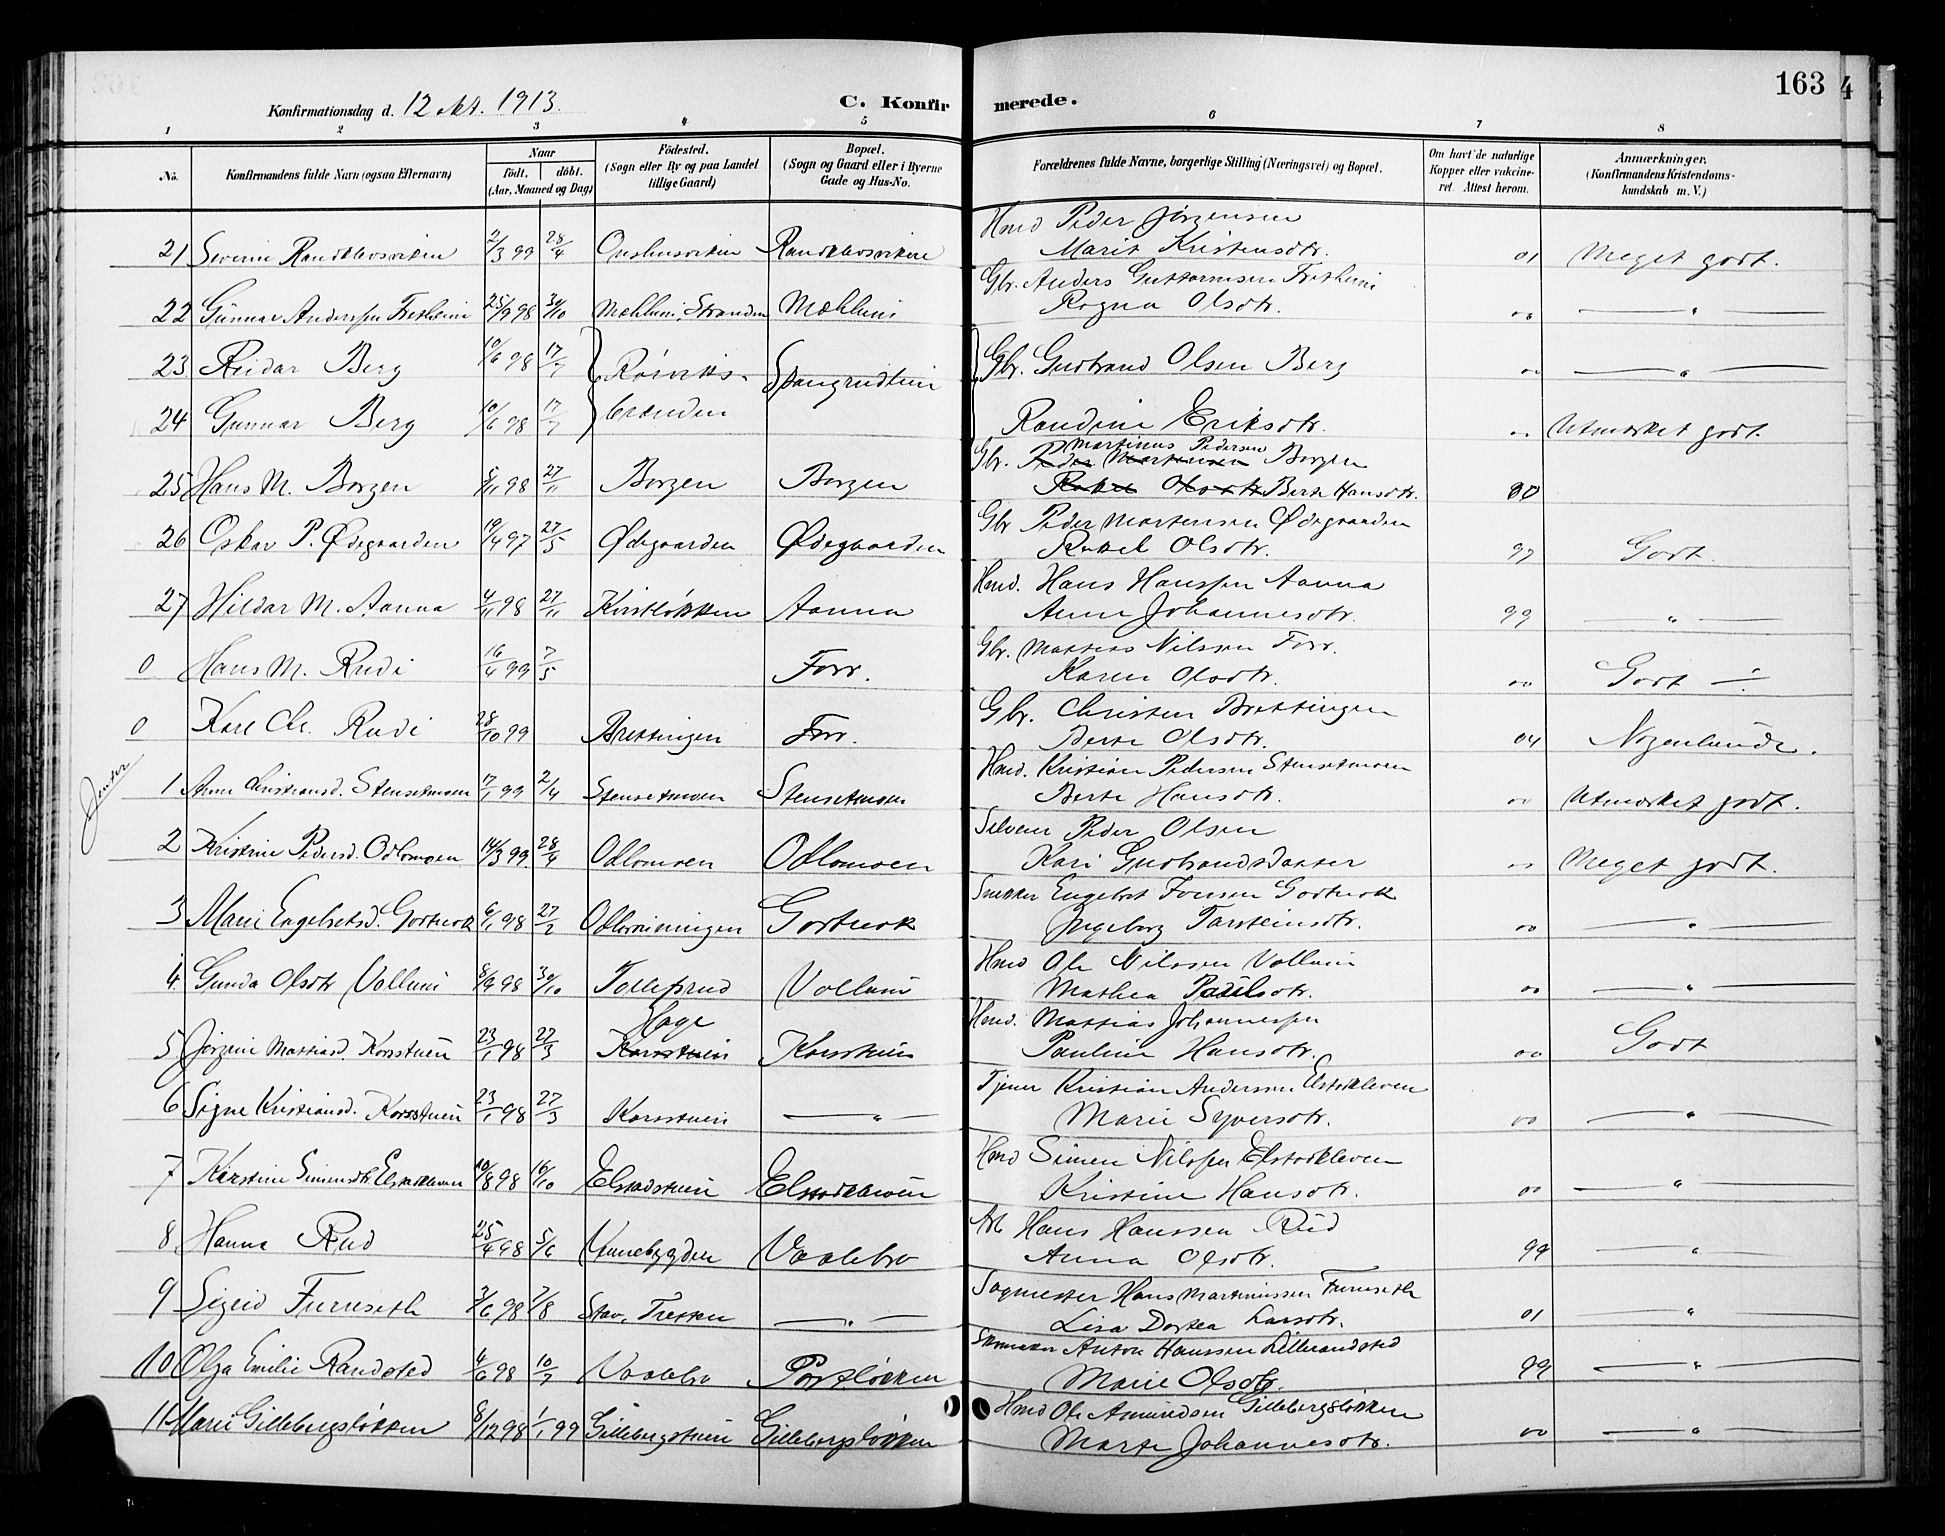 163
Konfirmationsdag d. 12 okt. 1913. C. Konfirmerede.
1 2 3 4 5 6 7 8
No. Konfirmandens fulde Navn (ogsaa Efternavn) Naar födt. döbt. (Aar, Maaned og Dag) Födested. (Sogn eller By og paa Landet tillige Gaard) Bopæl. (Sogn og Gaard eller i Byerne Gade og Hus-No. Forældrenes fulde Navne, borgerlige Stilling (Næringsvei) og Bopæl. Om havt de naturlige Kopper eller vakcineret. Attest herom. Anmærkninger. (Konfirmandens Kristendomskundskab m. V.)
Hmd Peder Jørgensen
21 Severin Randklevsviken 2/3 99 28/4 Randklevsviken Marit Kristensdtr. 01 Meget godt.
Gbr. Anders Guttormsen Fretheim
22 Gunnar Anderssen Fretheim 25/9 98 30/10 Mæhlum, Stranden Mæhlum Ragna Olsdtr. 00 — " —
23 Reidar Berg 10/6 98 17/7 Spangrudlien Gbr. Gudbrand Olsen Berg 00 — " —
24 Gunnar Berg 10/6 98 17/7 brænden Randine Eriksdtr. 00 Utmærket godt.
Gbr. Peder Martensen Martinus Pedersen Borgen
25 Hans M. Borgen 5/11 98 27/11 Borgen Borgen Rakel Olsdtr Berte Hansdtr. 00
Gbr Peder Martensen Ødegaarden
26 Oskar P. Ødegaarden 19/4 97 27/5 Ødegaarden Ødegaarden Rakel Olsdtr. 97 Godt.
Hmd. Hans Hanssen Aanna
27 Hildar M. Aanna 4/11 98 27/11 Aanna Anne Johannesdtr. 99 — " —
Gbr. Mattias Nilssen Forr.
0 Hans M. Rudi 16/4 99 7/5 Forr. Karen Olsdtr. 00 Godt ÷
Gbr. Christen Brettingen
0 Karl Chr. Rudi 28/10 99 Brettingen Forr. Berte Olsdtr. 04 Nogenlunde.
Jenter
Hmd. Kristian Pedersen Stensetmoen
1 Anne Christiansd. Stensetmoen 17/1 99 2/4 Stensetmoen Stensetmoen Berte Hansdtr. 00 Utmærket godt.
Selveier Peder Olsen
2 Kristine Pedersd. Odlomoen 14/3 99 28/4 Odlomoen Odlomoen Kari Gudbrandsdatter 00 Meget godt.
Snekker Engebret Gortnok
3 Marie Engebretsd. Gortnok 6/1 98 27/2 Gortnok Ingeborg Tarsteinsdtr. 00 — " —
Hmd Ole Nilssen Vollum
4 Gunda Olsdtr Vollum 8/9 98 30/10 Tollefsrud Vollum Mathea Paulsdtr. 00 — " —
Hmd. Mattias Johannessen
5 Jørgine Mattiasd. Korsstuen 23/1 98 27/3 Hage Korsstuen Korsstuen Pauline Hansdtr. 00 Godt
Tjener Kristian Andersen Elstadkleven
6 Signe Kristiansd. Korsstuen 23/1 98 27/3 Korsstuen — " — Marie Syversdtr. 00 — " —
Hmd Simen Nilssen Elstadkleven
7 Kirstine Simensdtr Elstadkleven 10/8 98 16/10 Elstadstuen Elstadkleven Kristine Hansdtr. 00 — " —
Arb Hans Hanssen Rud
8 Hanna Rud 25/4 98 5/6 Vaalebro Anna Olsdtr. 99 — " —
Sagmester Hans Martinussen Furuseth
9 Sigrid Furuseth 3/6 98 7/8 Stav, Tretten — " — Lisa Dortea Larsdtr. 01 — " —
Skomaker Anton Hanssen Lillerandsted
10 Olga Emilie Randsted 4/6 98 10/7 Vaalebro Portløkken Marie Olsdtr. 99 — " —
Hmd Ole Amundsen Gillebergsløkken
11 Marie Gillebergsløkken 8/12 98 1/1 99 Gillebergstuen Gillebergsløkken Marte Johannesdtr. 00 — " —